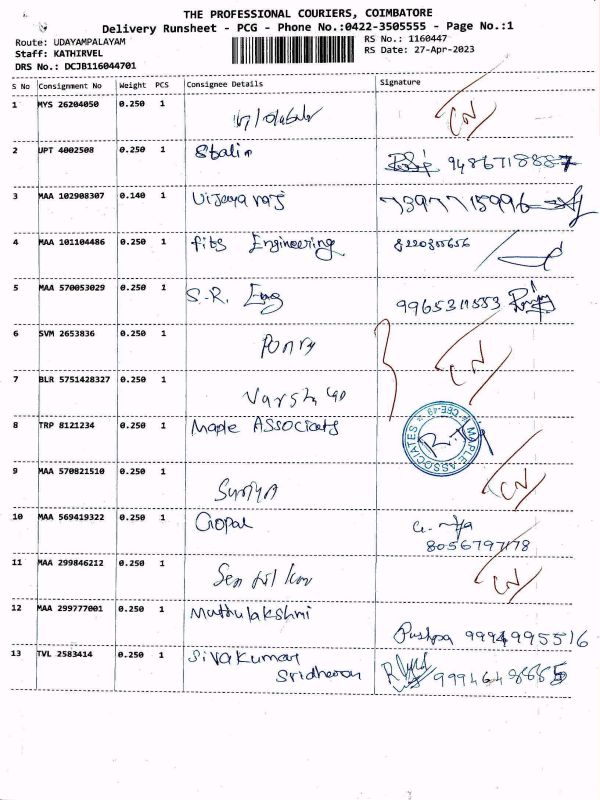 THE PROFESSIONAL COURIERS, COIMBATORE
Delivery Runsheet - PCG - Phone No.:0422-3505555 - Page No.:1
Route: UDAYAMPALAYAM RS No.: 1160447
Staff: KATHIRVEL RS Date: 27-Apr-2023
DRS No.: DCJB116044701
S No Consignment No Weight PCS Consignee Details Signature
1 MYS 26204050 0.250 1 CN
2 UPT 4002508 0.250 1 Stalin 9486718887
3 MAA 102908307 0.140 1 Vijayaraj 7397715996
4 MAA 101104486 0.250 1 fits Engineering 8220355656
5 MAA 570053029 0.250 1 S.R. Eng 9965311553
6 SVM 2653836 0.250 1 CN
7 BLR 5751428327 0.250 1
8 TRP 8121234 0.250 1 Maple Associats MAPLE ASSOCIATES CBE-49
9 MAA 570821510 0.250 1 Suriya CN
10 MAA 569419322 0.250 1 Gopal 8056797178
11 MAA 299846212 0.250 1 CN
12 MAA 299777001 0.250 1 Muthulakshmi Pushpa 9994995516
13 TVL 2583414 0.250 1 Sivakumar
Sridharan 9994648885